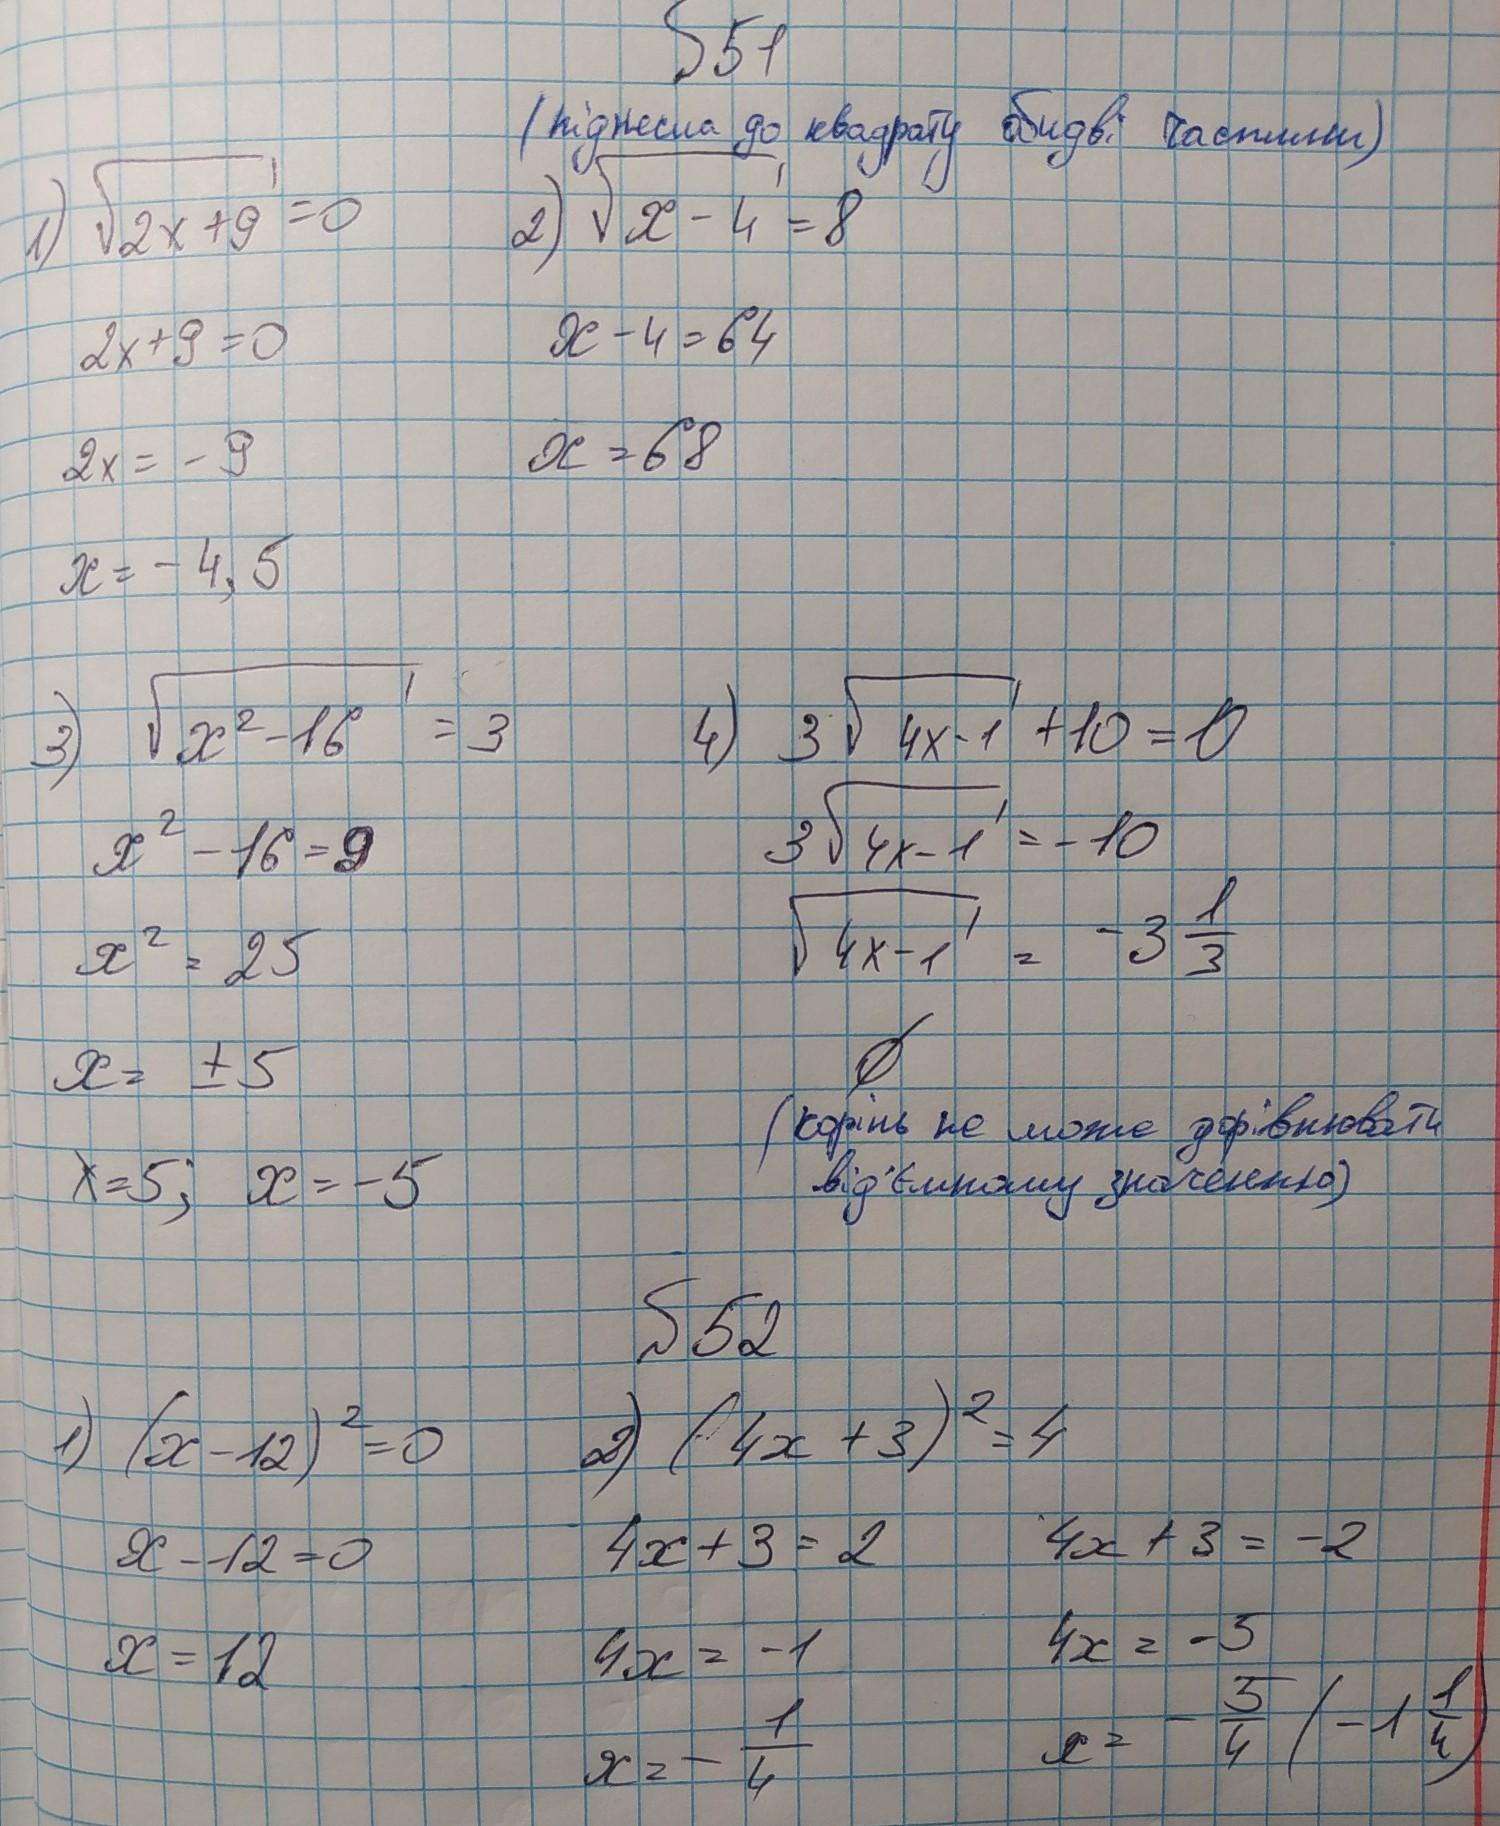 §51
(піднесла до квадрату обидві частини)
1) √(2x+9) = 0
2) √(x-4) = 8
2x+9=0
x-4=64
2x=-9
x=68
x=-4,5
3) √(x²-16) = 3
4) 3√(4x-1) +10=0
x²-16=9
3√(4x-1) = -10
x²=25
√(4x-1) = -3 1/3
x= ±5
∅
(корінь не може дорівнювати
x=5; x=-5
від'ємному значенню)
§52
1) (x-12)²=0
2) (4x+3)²=4
x-12=0
4x+3=2
4x+3=-2
x=12
4x=-1
4x=-5
x=-1/4
x=-5/4 (-1 1/4)